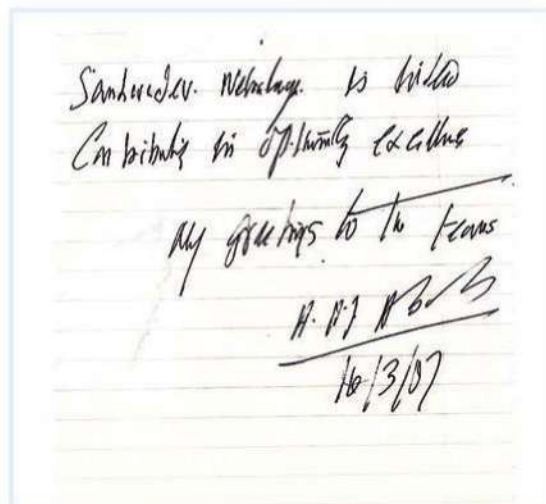 Sankaradev. Nethralaya. is
Contributing in Opthalmic excellence
My greetings to the teams
A. P. J
16/3/07